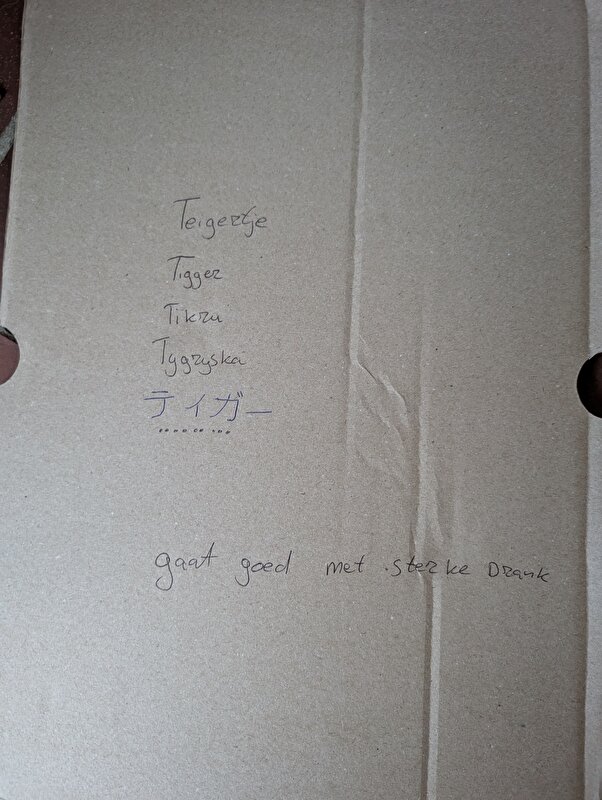 Teigertje
Tigger
Tikru
Tygryska
ティガー
gaat goed met sterke Drank